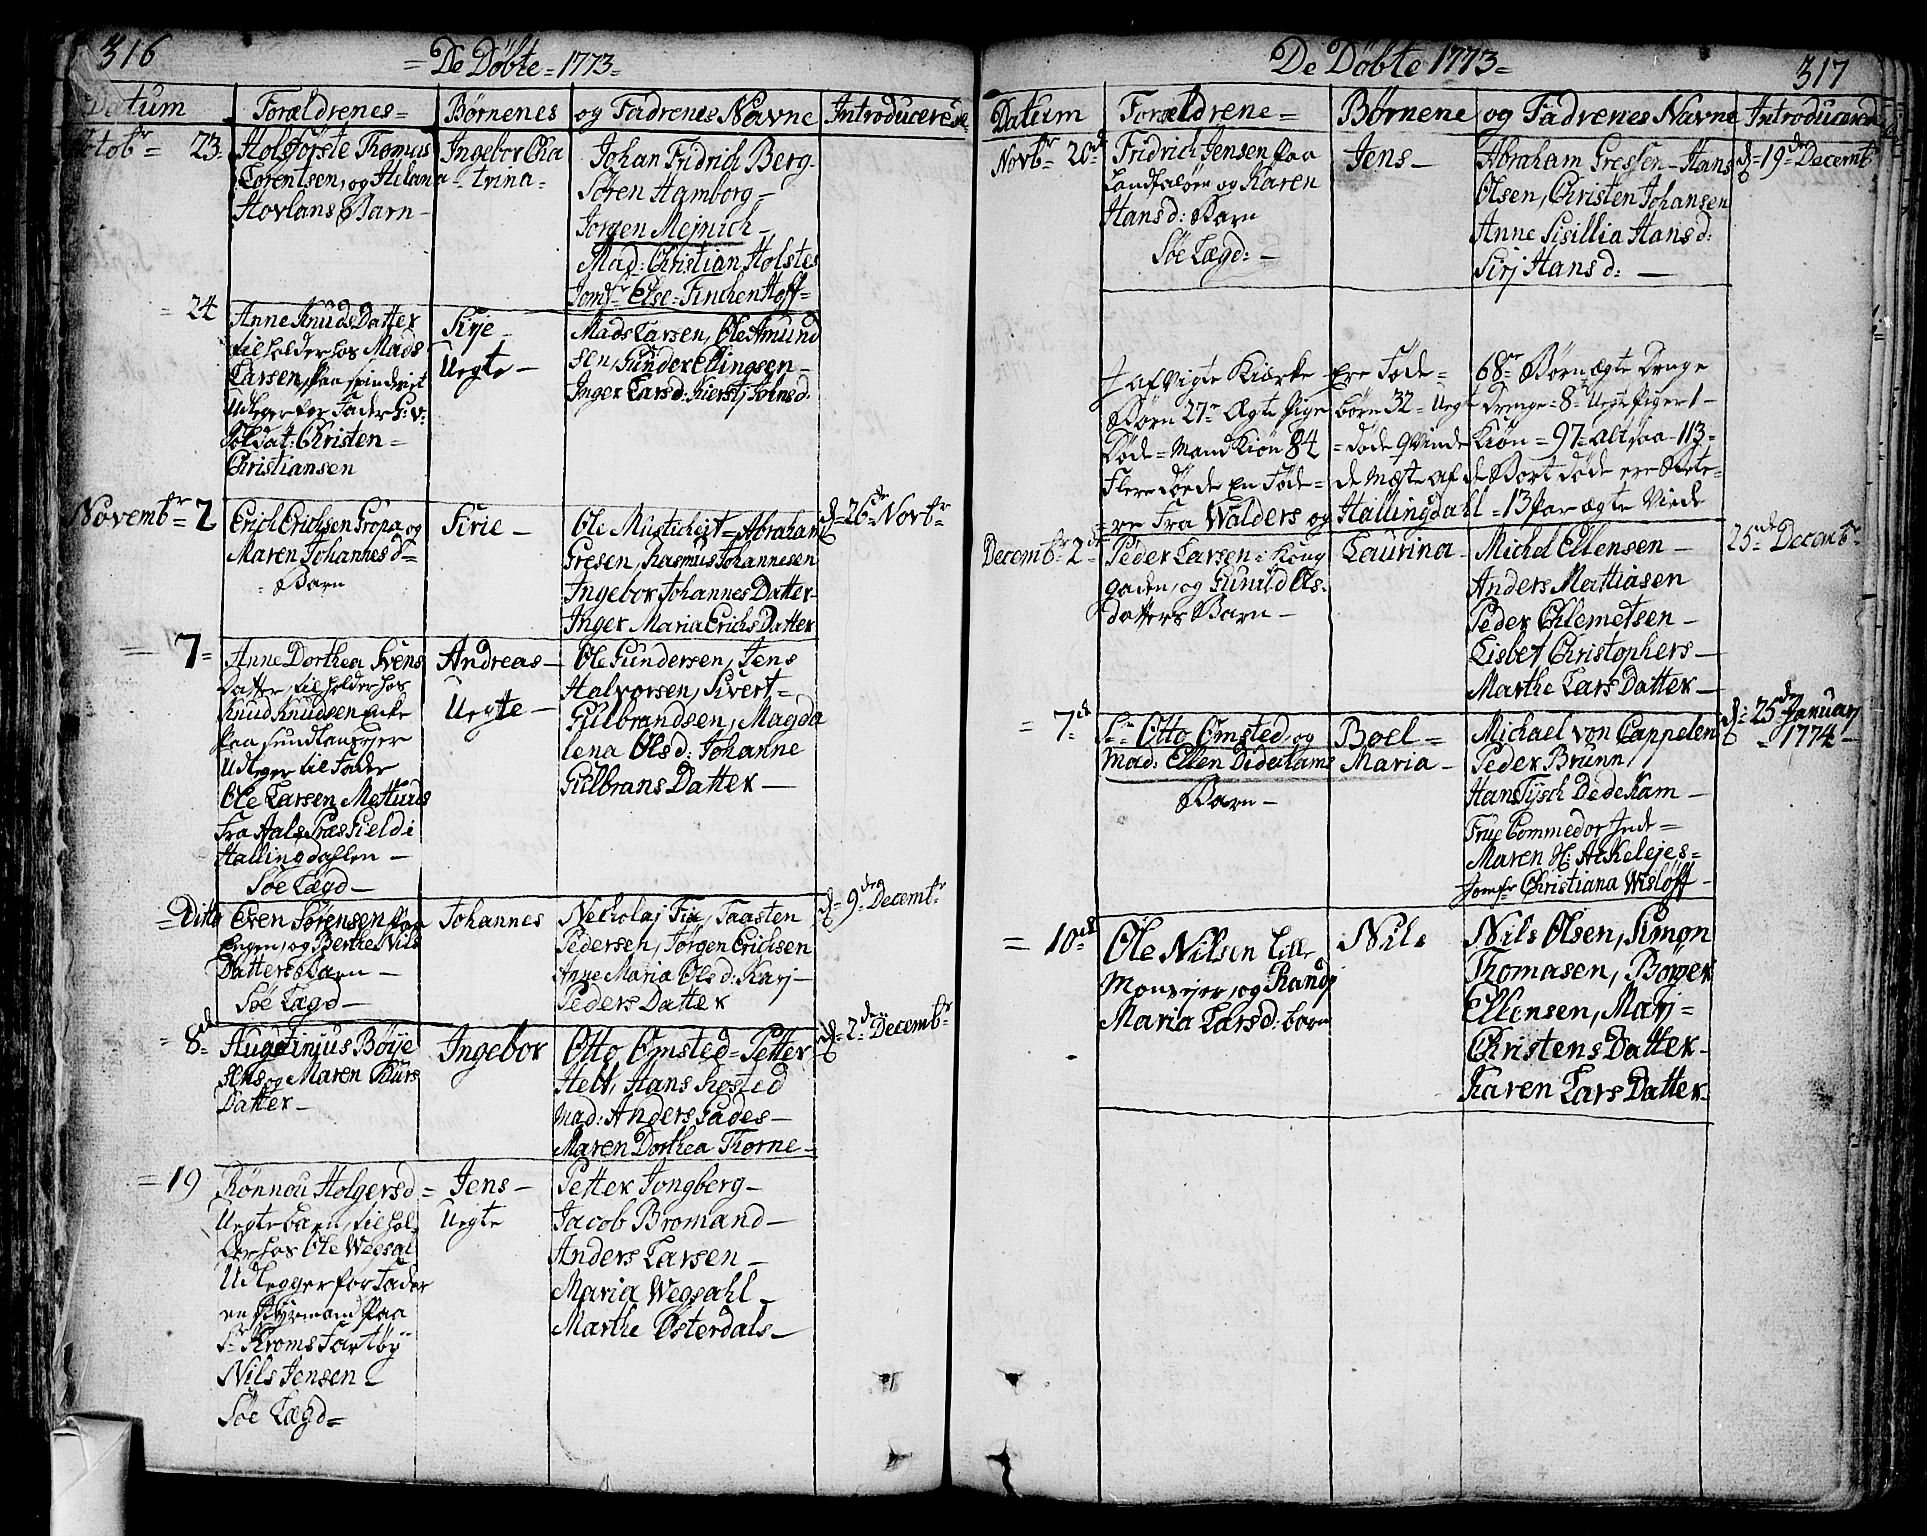 316
= De Döbte = 1773 =
Datum Forældrenes = Børnenes og Fadrenes Navne Introducerese
Octobr = 23 =
Holsförste Thomas
Lorentsen, og Helana
Hovlans Barn -
Ingebor Cha
= trina =
Johan Fridrich Berg -
Sören Hamborg -
Jörgen Mejnich -
Mad: Christian Holstes
Jomfr Else = Finchen Hoff =
= 24
Anne Knuds Datter
tilholder hos Mads
Larsen, paa
Udleger for Fader
Soldat: Christen =
Christiansen
Sirje -
Uegte -
Mads Larsen, Ole Amund
sen, Gunder Ellingsen -
Inger Larsd: Kierstj Johnsd:
Novembr = 2
Erich Erichsen Gropa og
Maren Johannesd =
Barn
Sirie -
Ole Musticheit = Abraham
Gresen, Rasmus Johannesen
Ingebor Johannes Datter -
Inger Maria Erichs Datter
d = 26de Novbr
= 7 =
Anne Dorthea Svens
Datter, tilholder hos
Knud Knudsen Enke
paa
Udleger til Fader
Ole Larsen
Fra Aals Præs Field i
Hallingdahlen -
Søe Lægd -
Andreas -
Uegte -
Ole Gundersen, Jens
Halvorsen, Sivert =
Gulbrandsen, Magda
lena Olsd: Johanne
Gulbrans Datter -
= Ditto
Even Sørensen paa
Engen, og Berthe Nils
Datters Barn -
Søe Lægd -
Johannes
Necholaj Fia, Taasten
Pedersen, Jørgen Erichsen
Anne Maria Olsd: Karj -
Peders Datter
d = 9de Decembr
= 8de
Augustinius Böije
sens og Maren Kurs
Datter -
Ingebor
Otto Omsted = Petter
Helt, Hans Rosted
Mad: Anders Gades -
Maren Dorthea Thorne =
d = 2den Decembr
= 19
Rönnou Holgersd =
Uegte barn, tilhol
der hos Ole Wegsal
Udlegger for Fader
en paa
Sr Kroms Fartöy
Nils Jensen -
Søe Lægd =
Jens -
Uegte
Petter Jongberg -
Jacob Bromand -
Anders Larsen -
Maria Wegsahl -
Marthe Østerdals -
De Döbte 1773 =
317
Datum Forældrene = Børnene og Fadrenes Navne Introducered
Novbr = 20de
Fridrich Jensen paa
Landfaløen og Karen
Hansd: Barn
Søe Lægd: -
Jens -
Abraham Gressen - Hans
Olsen, Christen Johansen
Anne Sisillia Hansd:
Sirj Hansd: -
d = 19de Decembr
J afvigte Kirke = Ere Föde = 68 Börn, ægte Drenge
Börn 27 = Ægte Pige börn 32 = Uegt Drenge = 8 = Uegte Piger 1 -
Döde = Mand Kiön 84 = döde Qvinde Kiön = 97 = alt saa - 113 =
Flere döde En Föde = de Mæste af de Bort döde ere Bete =
= re Fra Walders og Hallingdahl = 13 Par ægte Viede
Decembr = 2de
Peder Larsen i Kong
gaden, og Gunild Ols:
datters Barn -
Laurina -
Michel Ellensen -
Anders Mathiasen
Peder Chlemetsen -
Lisbet Christophers -
Marthe Lars Datter -
25de Decembr
= 7de
Sr Otto Omsted og
Mad: Ellen Diderlams
Barn -
Boel =
Maria -
Michael von Cappelen
Peder Brunn
Hans Tÿsch Dedekam -
Frue Commedor Inde =
Maren H: Arkelejes =
Jomfr Christiana Wisløff -
d = 25de January
= 1774 -
= 10de
Ole Nilsen Lille
Monsejer, og Randj
Maria Larsd: barn
Nils
Nils Olsen, Simon
Thomasen, Borger
Ellensen, Marj =
Christens Datter -
Karen Lars Datter -